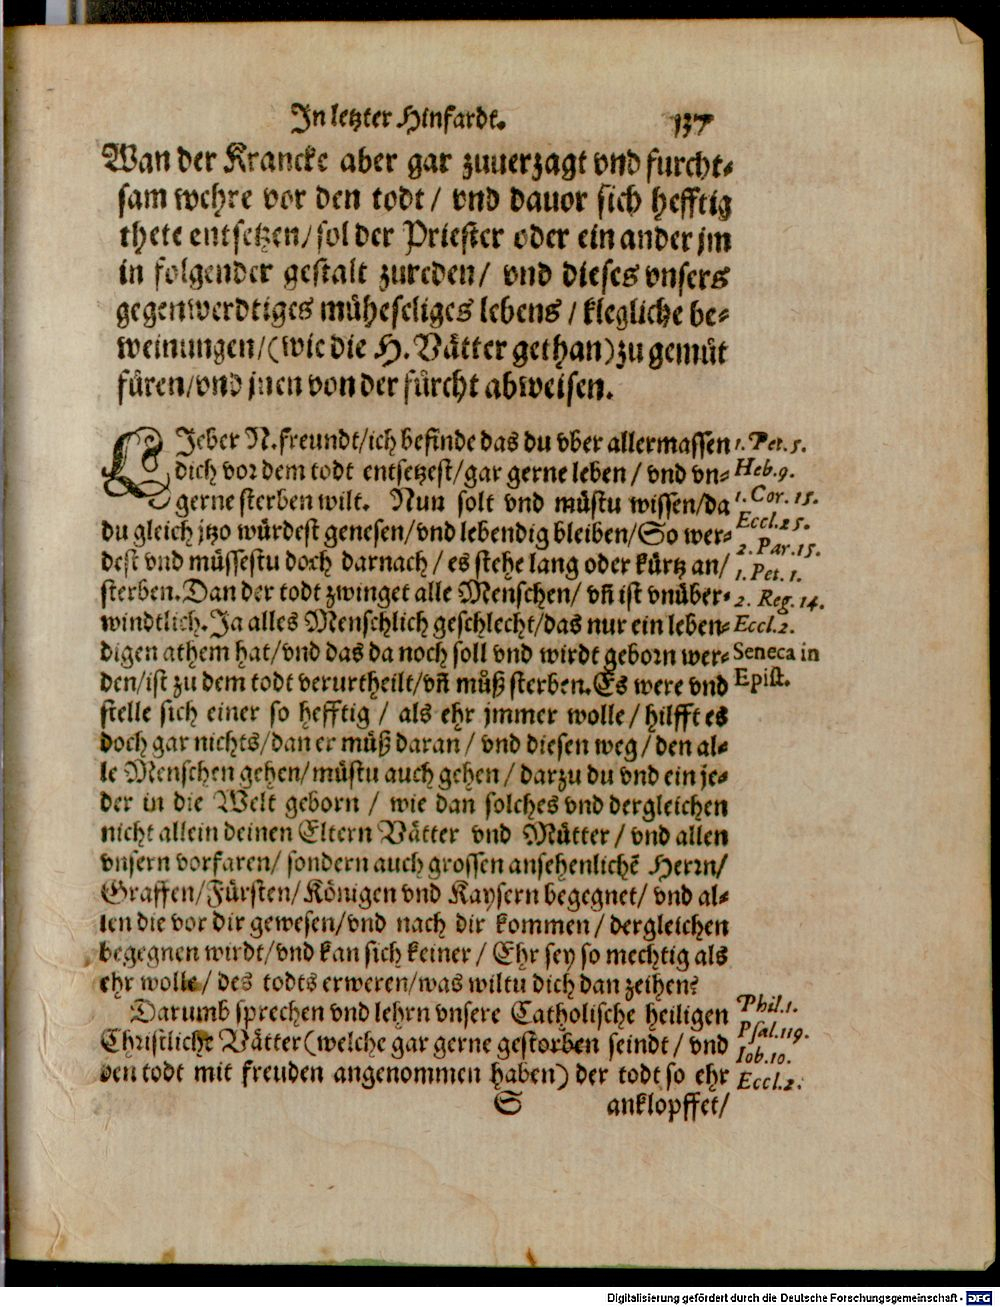 In letzter Hinfardt. 137
Wan der Krancke aber gar zuuerzagt vnd furcht⸗
sam wehre vor den todt / vnd dauor sich hefftig
thete entsetzen / sol der Priester oder ein ander jm
in folgender gestalt zureden / vnd dieses vnsers
gegenwerdtiges müheseliges lebens / klegliche be⸗
weinungen / (wie die H. Vätter gethan) zu gemüt
füren / vnd jnen von der fürcht abweisen.
LIeber N. freundt / ich befinde das du vber allermassen 1. Pet. 5.
dich vor dem todt entsetzest / gar gerne leben / vnd vn⸗ Heb. 9.
gerne sterben wilt. Nun solt vnd müstu wissen / da 1. Cor. 15.
du gleich jtzo würdest genesen / vnd lebendig bleiben / So wer⸗ Eccl. 25.
dest vnd müssestu doch darnach / es stehe lang oder kürtz an / 2. Par. 15.
1. Pet. 1.
sterben. Dan der todt zwinget alle Menschen / vñ ist vnüber⸗ 2. Reg. 14.
windtlich. Ja alles Menschlich geschlecht / das nur ein leben⸗ Eccl. 2.
digen athem hat / vnd das da noch soll vnd wirdt geborn wer⸗ Seneca in
den / ist zu dem todt verurtheilt / vñ müß sterben. Es were vnd Epist.
stelle sich einer so hefftig / als ehr jmmer wolle / hilfft es
doch gar nichts / dan er müß daran / vnd diesen weg / den al⸗
le Menschen gehen / müstu auch gehen / darzu du vnd ein je⸗
der in die Welt geborn / wie dan solches vnd dergleichen
nicht allein deinen Eltern Vätter vnd Mütter / vnd allen
vnsern vorfaren / sondern auch grossen ansehenlichẽ Herrn /
Graffen / Fürsten / Königen vnd Kaysern begegnet / vnd al⸗
len die vor dir gewesen / vnd nach dir kommen / dergleichen
begegnen wirdt / vnd kan sich keiner / Ehr sey so mechtig als
ehr wolle / des todts erweren / was wiltu dich dan zeihen?
Darumb sprechen vnd lehrn vnsere Catholische heiligen Phil. 1.
Christliche Vätter (welche gar gerne gestorben seindt / vnd Psal. 119.
Iob. 10.
den todt mit freuden angenommen haben) der todt so ehr Eccl. 2.
S anklopffet /
Digitalisierung gefördert durch die Deutsche Forschungsgemeinschaft - DFG